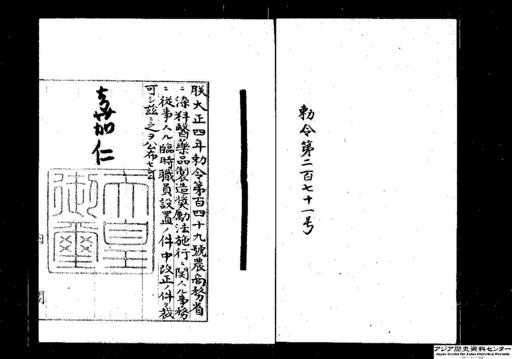 勅令第二百七十一号
朕大正四年勅令第百四十九號農商務省
ニ染料醫藥品製造奬勵法施行ニ關スル事務
ニ從事スル臨時職員設置ノ件中改正ノ件ヲ裁
可シ茲ニ之ヲ公布セシム
嘉仁
天皇
御璽
内 閣
アジア歴史資料センター
Japan Center for Asian Historical Records